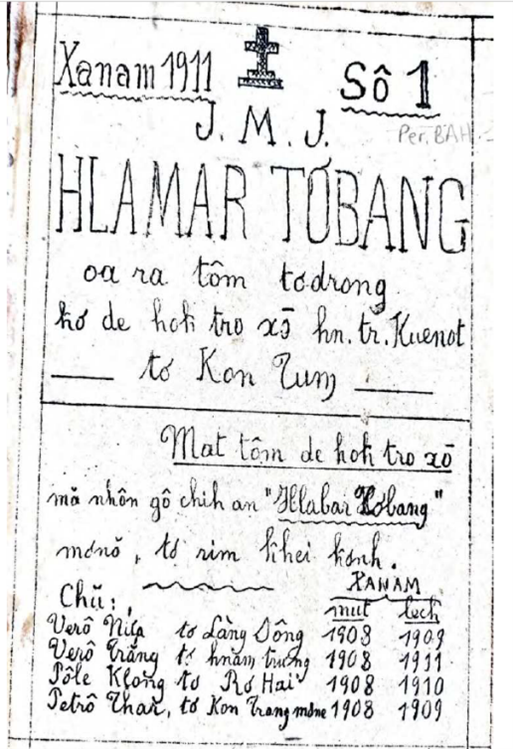 Xanam 1911
Sô 1
J. M. J.
Per. BAH
HLAMAR TƠBANG
oa ra tôm tơdrong
kơ de hok tro xŏ hn. tr. Kuenot
tơ Kon Tum
Mat tôm de hok tro xŏ
mă nhôn gô chih an "Hlabar Tơbang"
mơnŏ, tơ rim khei kơnh.
XANAM
Chŭ: mut lech
Verô Nua tơ Làng Sông 1908 1909
Verô Trăng tơ hnam trưng 1908 1911
Pôle Klong tơ Rơ Hai 1908 1910
Petrô Thar, tơ Kon Trang mơne 1908 1909